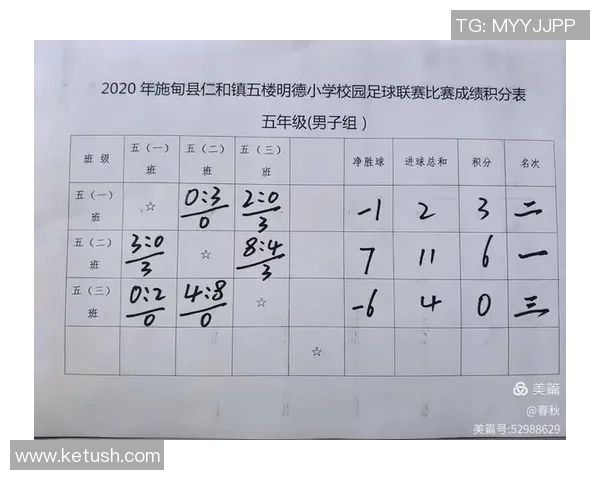 TG: MYYJJPP
2020 年施甸县仁和镇五楼明德小学校园足球联赛比赛成绩积分表
五年级(男子组 )
班 级 五（一）班 五（二）班 五（三）班 净胜球 进球总和 积分 名次
五（一）班 ☆ 0:3/0 2:0/3 -1 2 3 二
五（二）班 3:0/3 ☆ 8:4/3 7 11 6 一
五（三）班 0:2/0 4:8/0 ☆ -6 4 0 三
☆
美篇
@春秋
美篇号:52988629
www.ketush.com